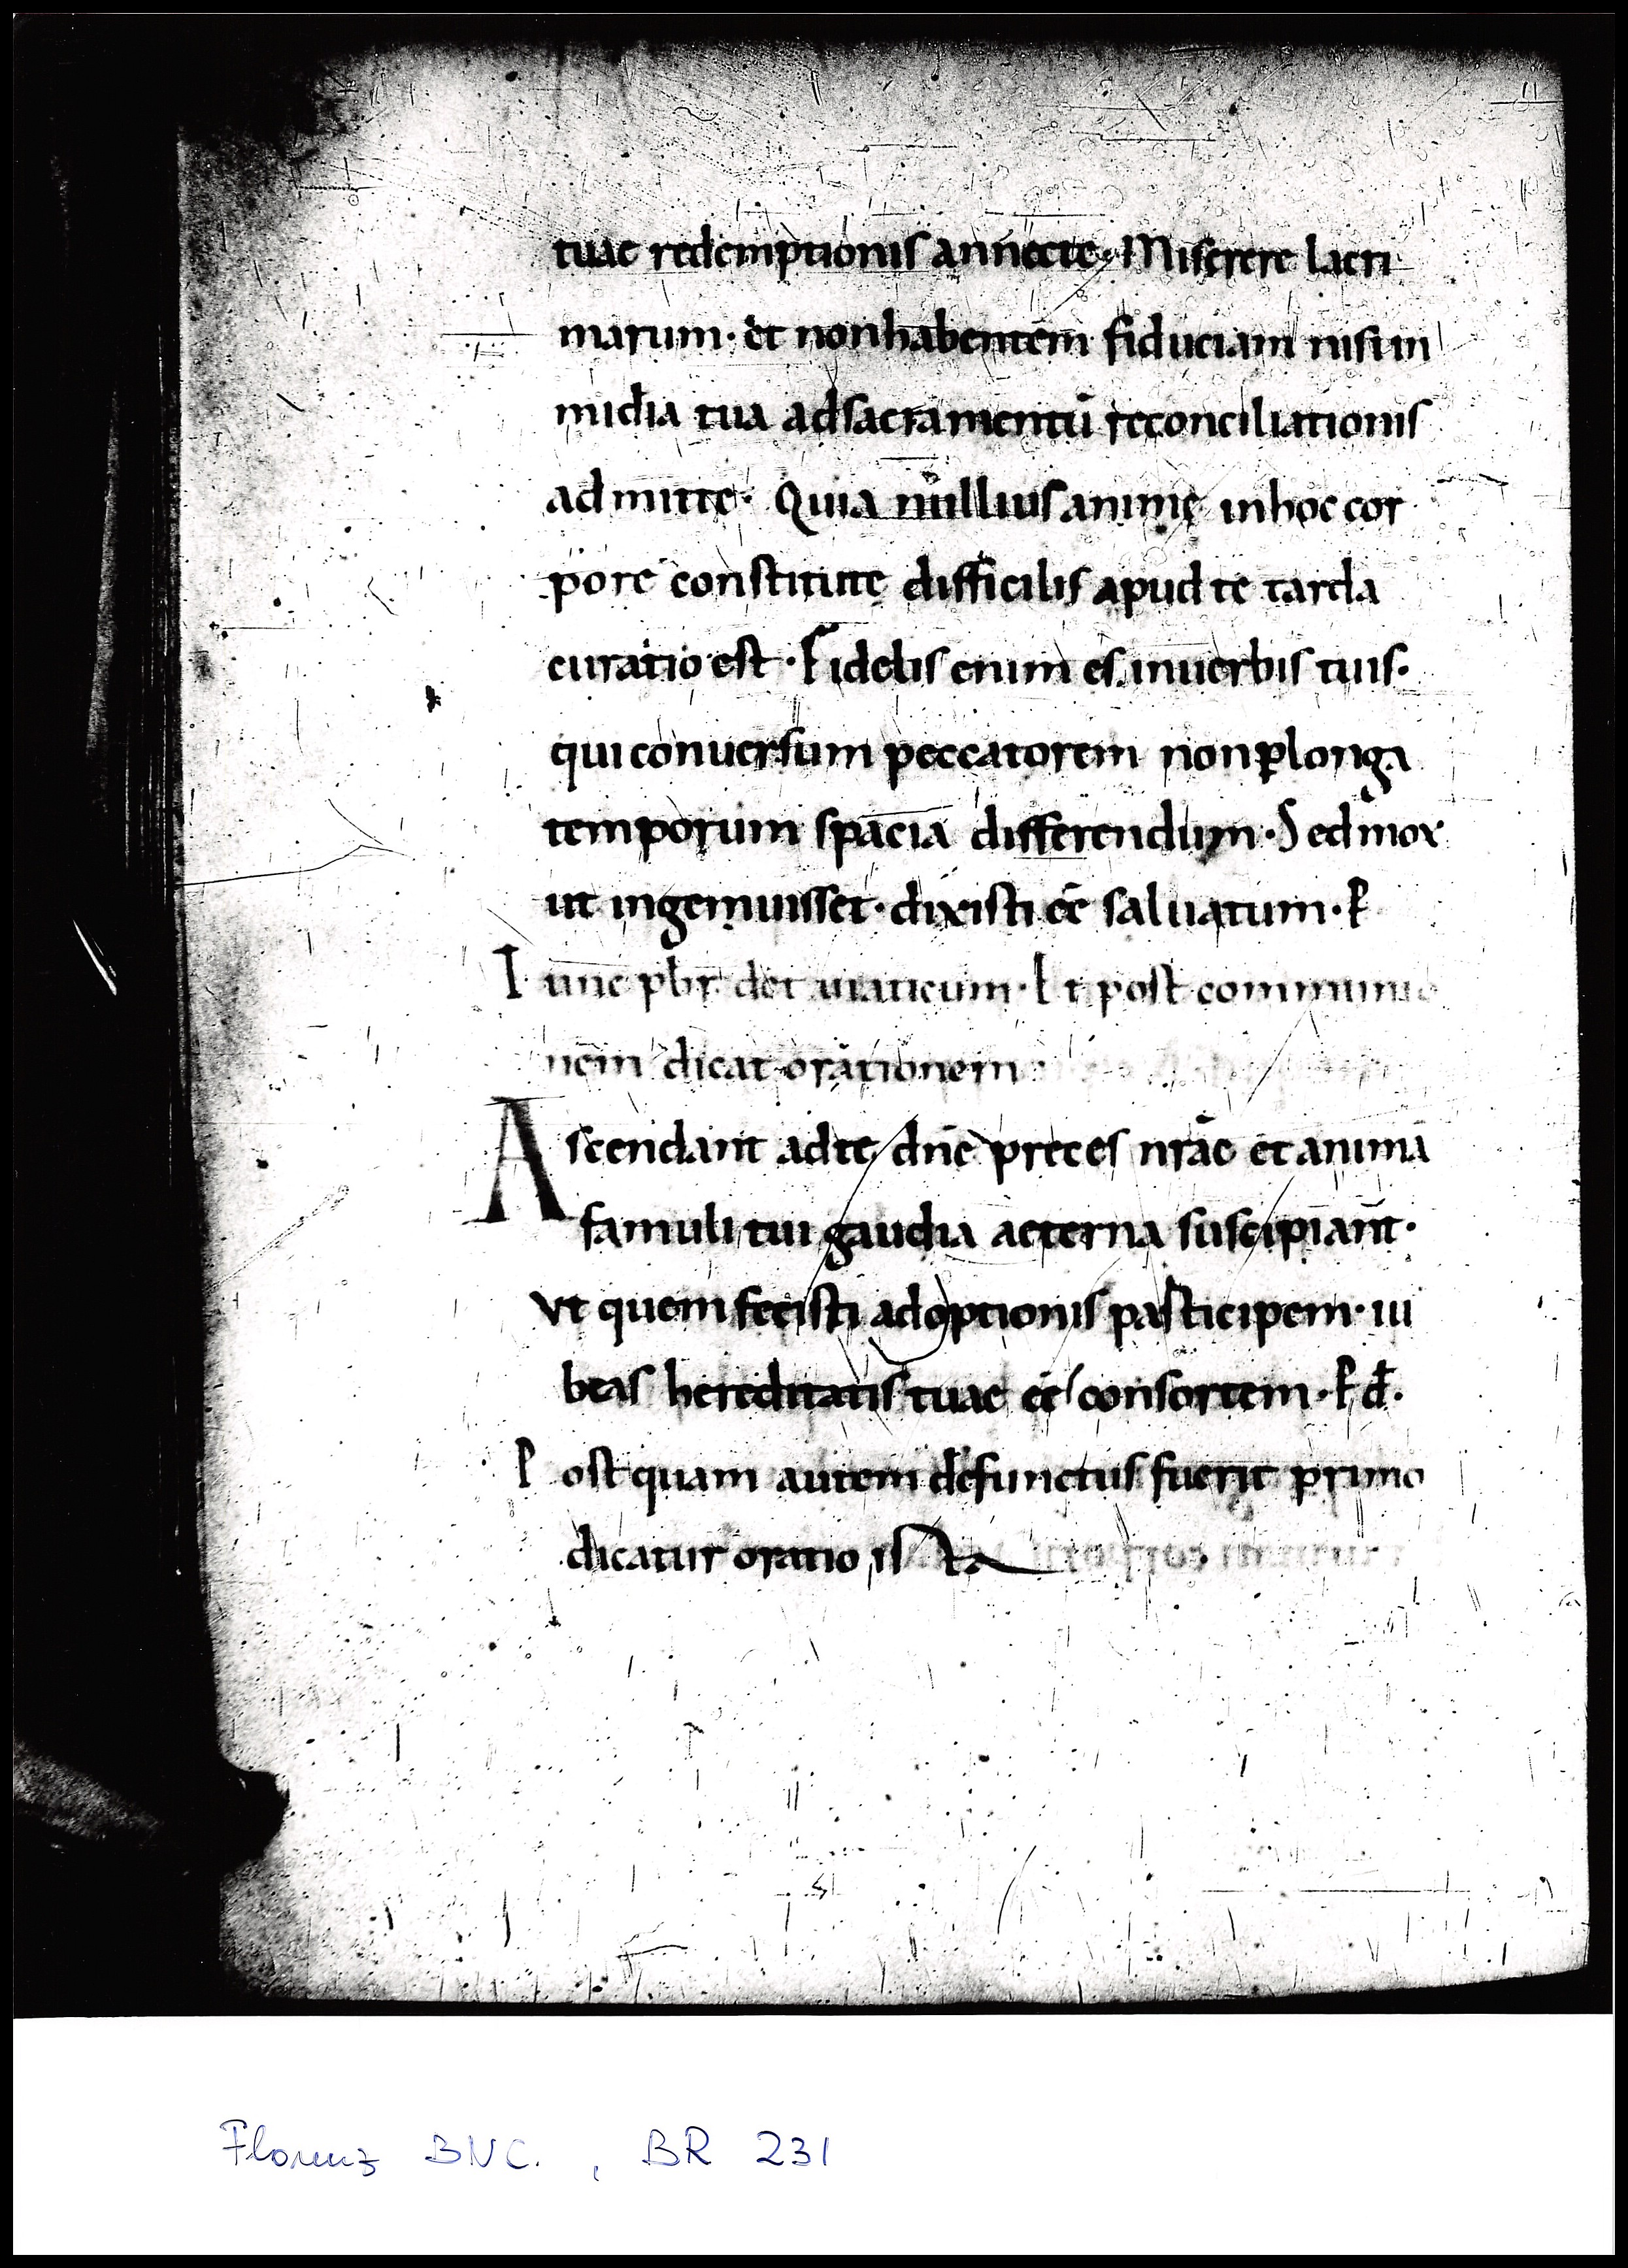 tuae redemptionis annecte· Miserere lacri
marum· et non habentem fiduciam nisi in
mīdia tua ad sacramentū reconciliationis
admitte· Quia nullius animę in hoc cor
pore constitutę difficilis apud te tarda
curatio est· Fidelis enim es in uerbis tuis·
qui conuersum peccatorem non ꝑ longa
temporum spacia differendum· Sed mox
ut ingemuisset· dixisti eē saluatum· P̄
Tunc pb̄r det uiaticum· Et post communio
nem dicat orationem·
Ascendant ad te dn̄e preces nr̄ae et animā
famuli tui gaudia aeterna suscipiant·
Vt quem fecisti adoptionis participem· iu
beas hereditatis tuae eē consortem· P̄ d̄·
Postquam autem defunctus fuerit primo
dicatur oratio ista
Florenz BNC., BR 231